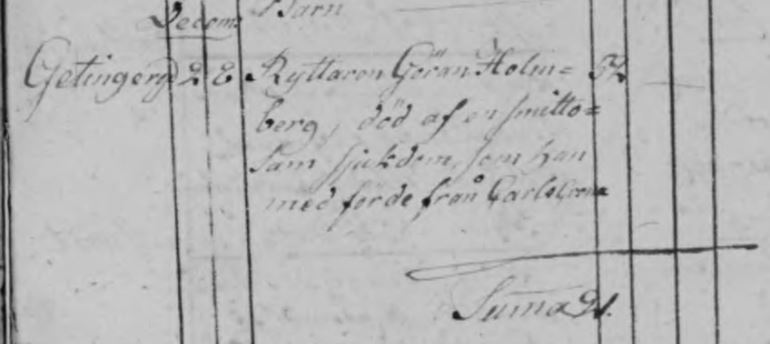 Decem: Barn
Getingeryd 2 8 Ryttaren Göran Holm= 52
berg, död af en smitto=
sam sjukdom, som han
med förde från Carlscrona
Suma 21.